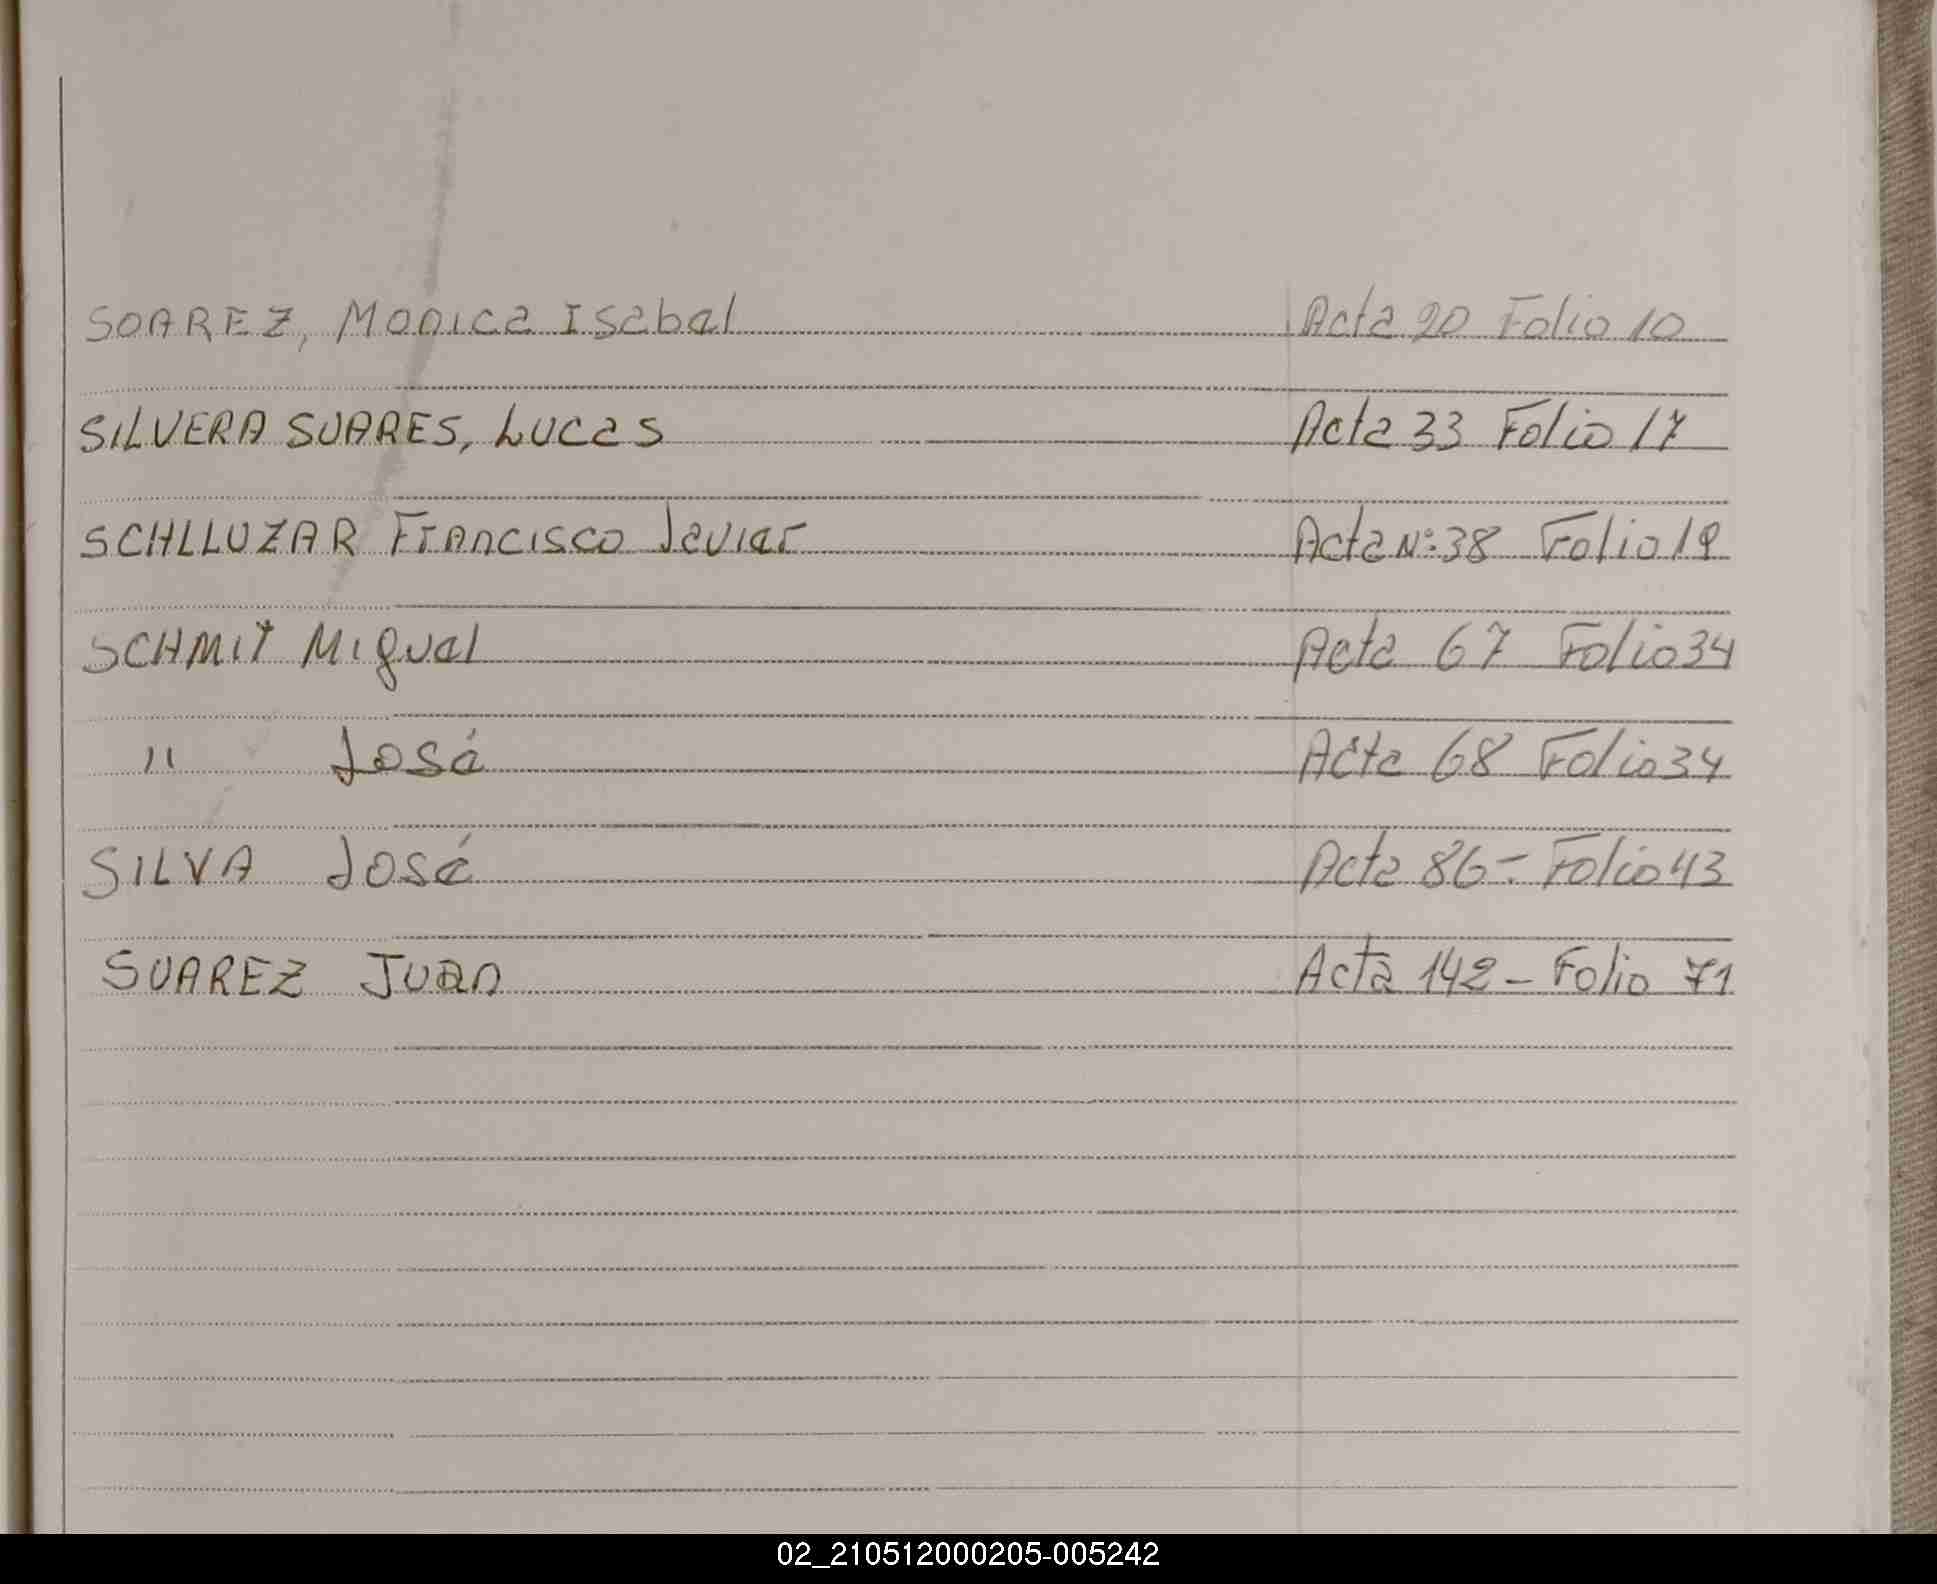 SOAREZ, Monica Isabel Acta 20 Folio 10
SILVERA SUARES, Lucas Acta 33 Folio 17
SCHLLUZAR Francisco Javier Acta Nº:38 Folio 19
SCHMIT Miguel Acta 67 Folio 34
" José Acta 68 Folio 34
SILVA José Acta 86 = Folio 43
SUAREZ JUAN Acta 142 - Folio 71
02_210512000205-005242